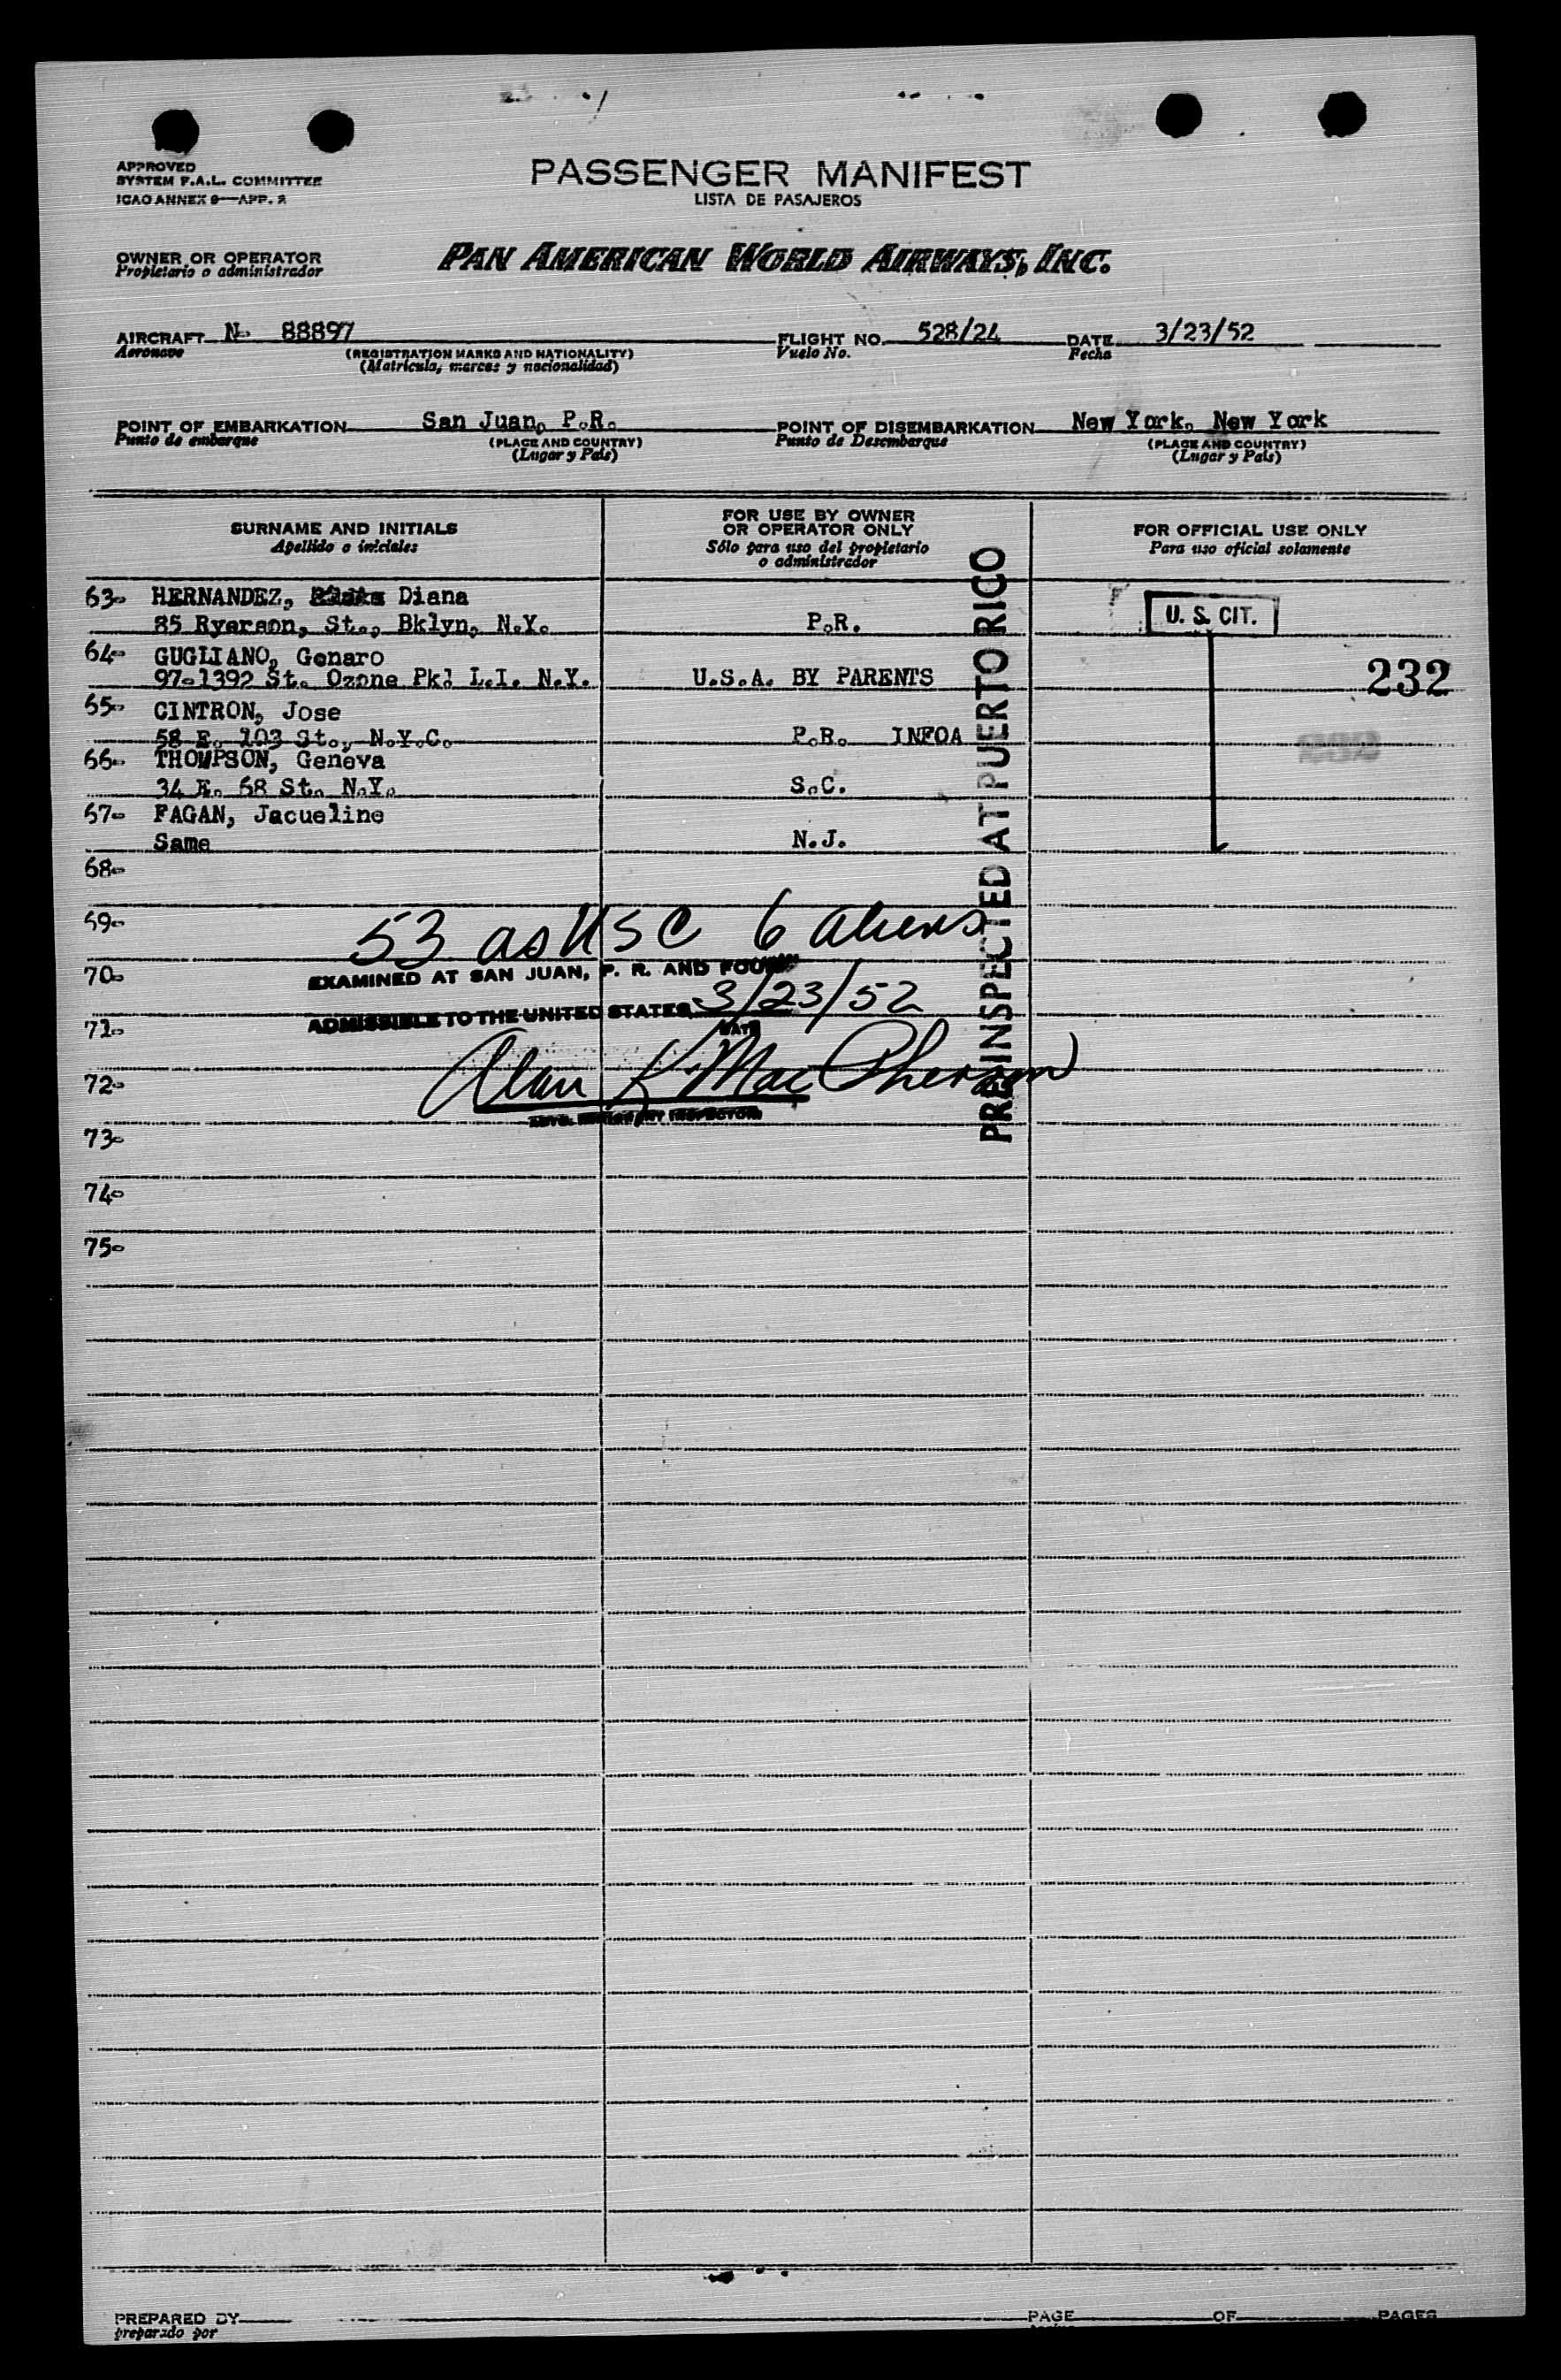 APPROVED
SYSTEM F.A.L. COMMITTEE
ICAO ANNEX 9—APP. 2
PASSENGER MANIFEST
LISTA DE PASAJEROS
OWNER OR OPERATOR
Propietario o administrador
PAN AMERICAN WORLD AIRWAYS, INC.
AIRCRAFT N- 88897
Aeronave
(REGISTRATION MARKS AND NATIONALITY)
(Matrícula, marcas y nacionalidad)
FLIGHT NO. 528/24
Vuelo No.
DATE 3/23/52
Fecha
POINT OF EMBARKATION San Juan, P.R.
Punto de embarque
(PLACE AND COUNTRY)
(Lugar y País)
POINT OF DISEMBARKATION New York, New York
Punto de Desembarque
(PLACE AND COUNTRY)
(Lugar y País)
SURNAME AND INITIALS
Apellido o iniciales
FOR USE BY OWNER
OR OPERATOR ONLY
Sólo para uso del propietario
o administrador
FOR OFFICIAL USE ONLY
Para uso oficial solamente
63- HERNANDEZ, Diana
85 Ryerson, St., Bklyn, N.Y. P.R.
U. S. CIT.
64- GUGLIANO, Genaro
97-1392 St. Ozone Pk. L.I. N.Y. U.S.A. BY PARENTS
232
65- CINTRON, Jose
58 E. 103 St., N.Y.C. P.R. INFOA
66- THOMPSON, Geneva
34 E. 68 St. N.Y. S.C.
67- FAGAN, Jacueline
Same N.J.
68-
69-
53 as USC 6 aliens
70-
EXAMINED AT SAN JUAN, P. R. AND FOUND
ADMISSIBLE TO THE UNITED STATES 3/23/52
DATE
71-
72-
Alan K MacPherson
INSPECTOR
73-
74-
75-
PREINSPECTED AT PUERTO RICO
PREPARED BY
preparado por
PAGE OF PAGES